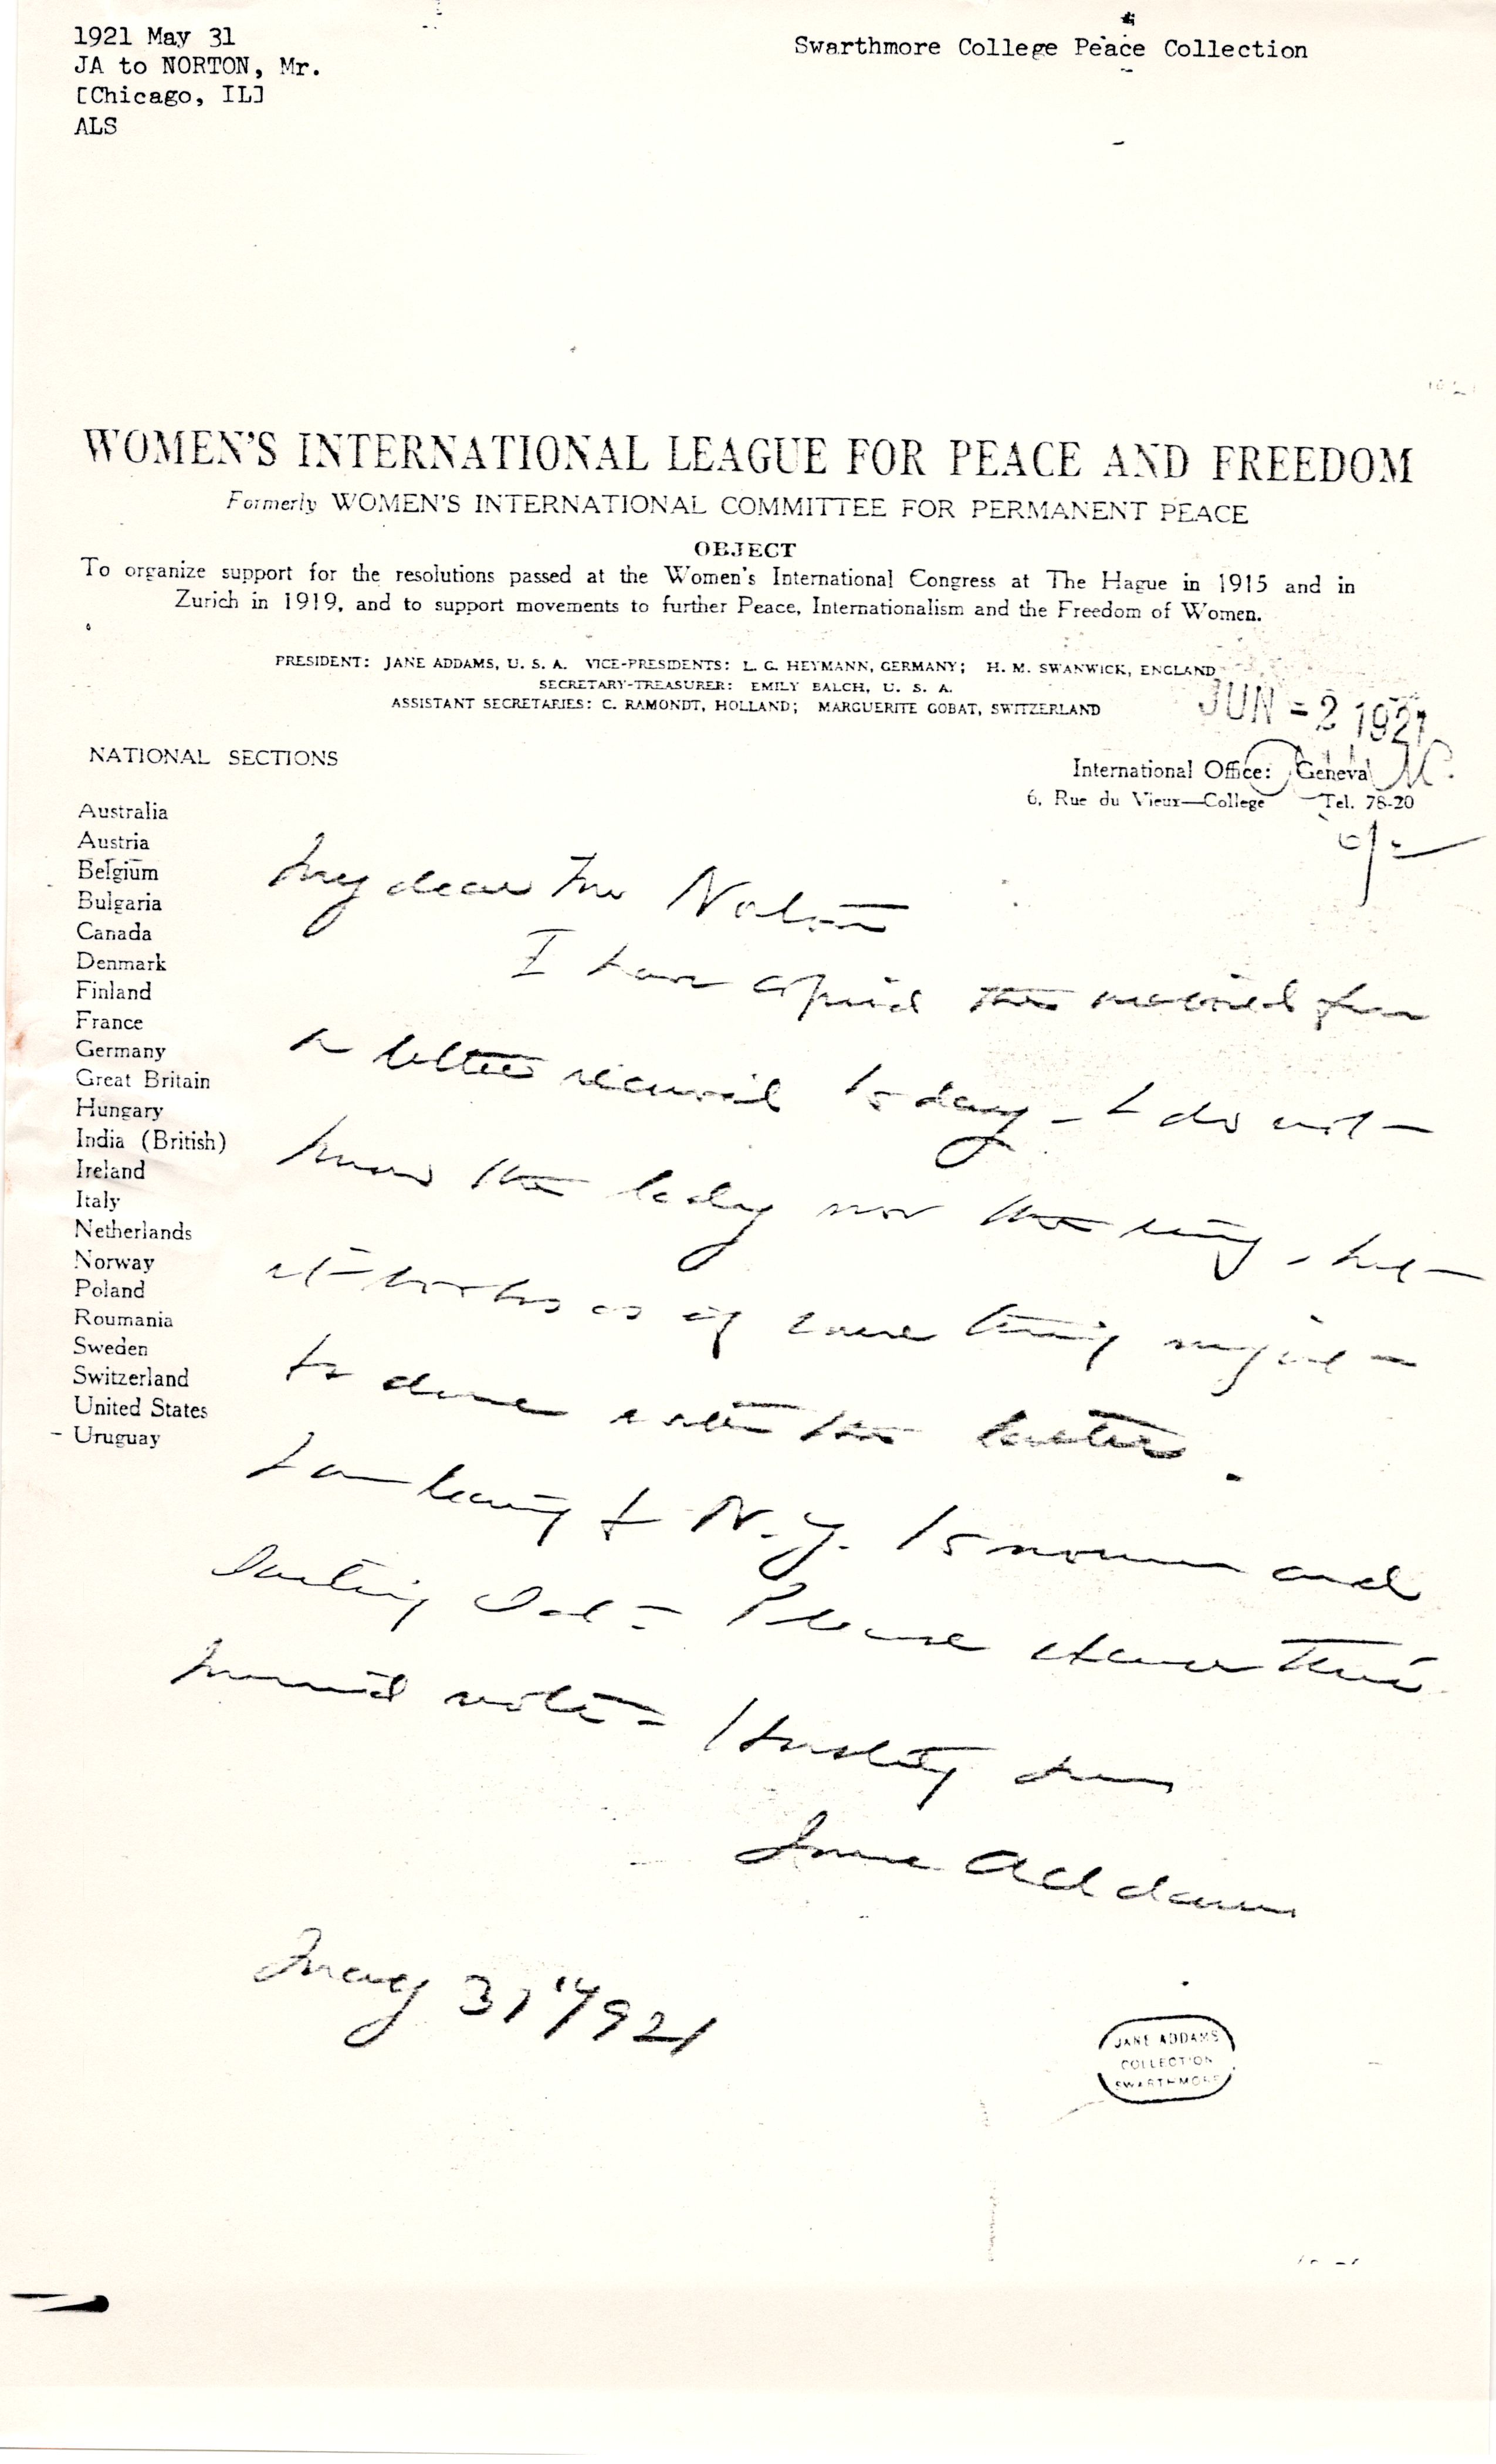 1921 May 31
JA to NORTON, Mr.
[Chicago, IL]
ALS
Swarthmore College Peace Collection
WOMEN'S INTERNATIONAL LEAGUE FOR PEACE AND FREEDOM
Formerly WOMEN'S INTERNATIONAL COMMITTEE FOR PERMANENT PEACE
OBJECT
To organize support for the resolutions passed at the Women's International Congress at The Hague in 1915 and in
Zurich in 1919, and to support movements to further Peace, Internationalism and the Freedom of Women.
PRESIDENT: JANE ADDAMS, U. S. A. VICE-PRESIDENTS: L. G. HEYMANN, GERMANY; H. M. SWANWICK, ENGLAND
SECRETARY-TREASURER: EMILY BALCH, U. S. A.
ASSISTANT SECRETARIES: C. RAMONDT, HOLLAND; MARGUERITE GOBAT, SWITZERLAND
JUN -2 1921
NATIONAL SECTIONS
International Office: Geneva
6, Rue du Vieux-College Tel. 78-20
Australia
Austria
Belgium
Bulgaria
Canada
Denmark
Finland
France
Germany
Great Britain
Hungary
India (British)
Ireland
Italy
Netherlands
Norway
Poland
Roumania
Sweden
Switzerland
United States
Uruguay
My dear Mr Norton
I have copied the from
a letter received today - I do not
know the lady nor the - but
it looks as if some thing might
be done with the latter.
I am leaving for N.Y. and
sailing Sat - Please excuse this
hurried note - Hastily yours
Jane Addams
May 31" 1921
JANE ADDAMS
COLLECTION
SWARTHMORE